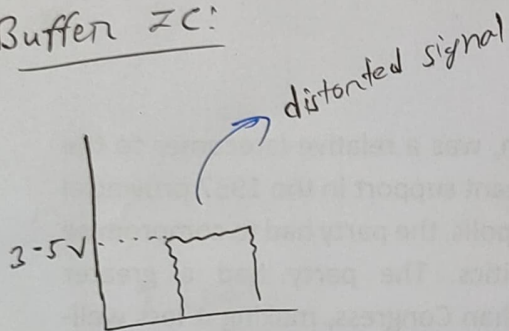 Buffer IC:
distorted signal
3-5V